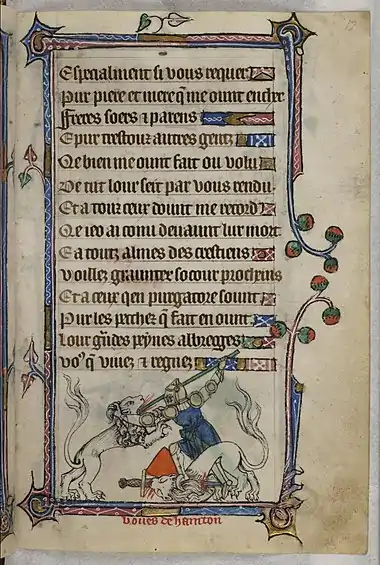 Especialment si vous requer
Pur piere et mere q̄ me ount endit
Freres soers ⁊ parens
E pur trestouz autres gentz
Qe bien me ount fait ou volu
De tut lour seit par vous rendu
Et a touz ceux dount me record
Qe ieo ai conu deuaunt lur mort
E a toutz almes des crestiens
Voillez graunter socour procheins
Et a ceux qen purgatore sount
Pur les pechez q̄ fait en ount
Lour gñdes peynes albregges
Vo⁹ q̄ viuez ⁊ regnez
boues de hamton